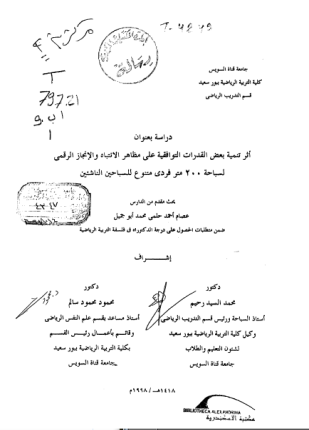 T-4879
مركزى
T
797.21
ا
جامعة قناة السويس
كلية التربية الرياضية ببور سعيد
قسم التدريب الرياضى
دراسة بعنوان
أثر تنمية بعض القدرات التوافقية على مظاهر الانتباه والإنجاز الرقمى
لسباحة ٢٠٠ متر فردى متنوع للسباحين الناشئين
بحث مقدم من الدارس
عصام أحمد حلمى محمد أبو جميل
ضمن متطلبات الحصول على درجة الدكتوراه فى فلسفة التربية الرياضية
إشراف
دكتور
محمد السيد رحيم
أستاذ السباحة ورئيس قسم التدريب الرياضى
وكيل كلية التربية الرياضية ببور سعيد
لشئون التعليم والطلاب
جامعة قناة السويس
دكتور
محمود محمود سالم
أستاذ مساعد بقسم علم النفس الرياضى
وقائم بأعمال رئيس القسم
بكلية التربية الرياضية ببور سعيد
جامعة قناة السويس
١٤١٨هـ/١٩٩٨م
BIBLIOTHECA ALEXANDRINA
مكتبة الاسكندرية